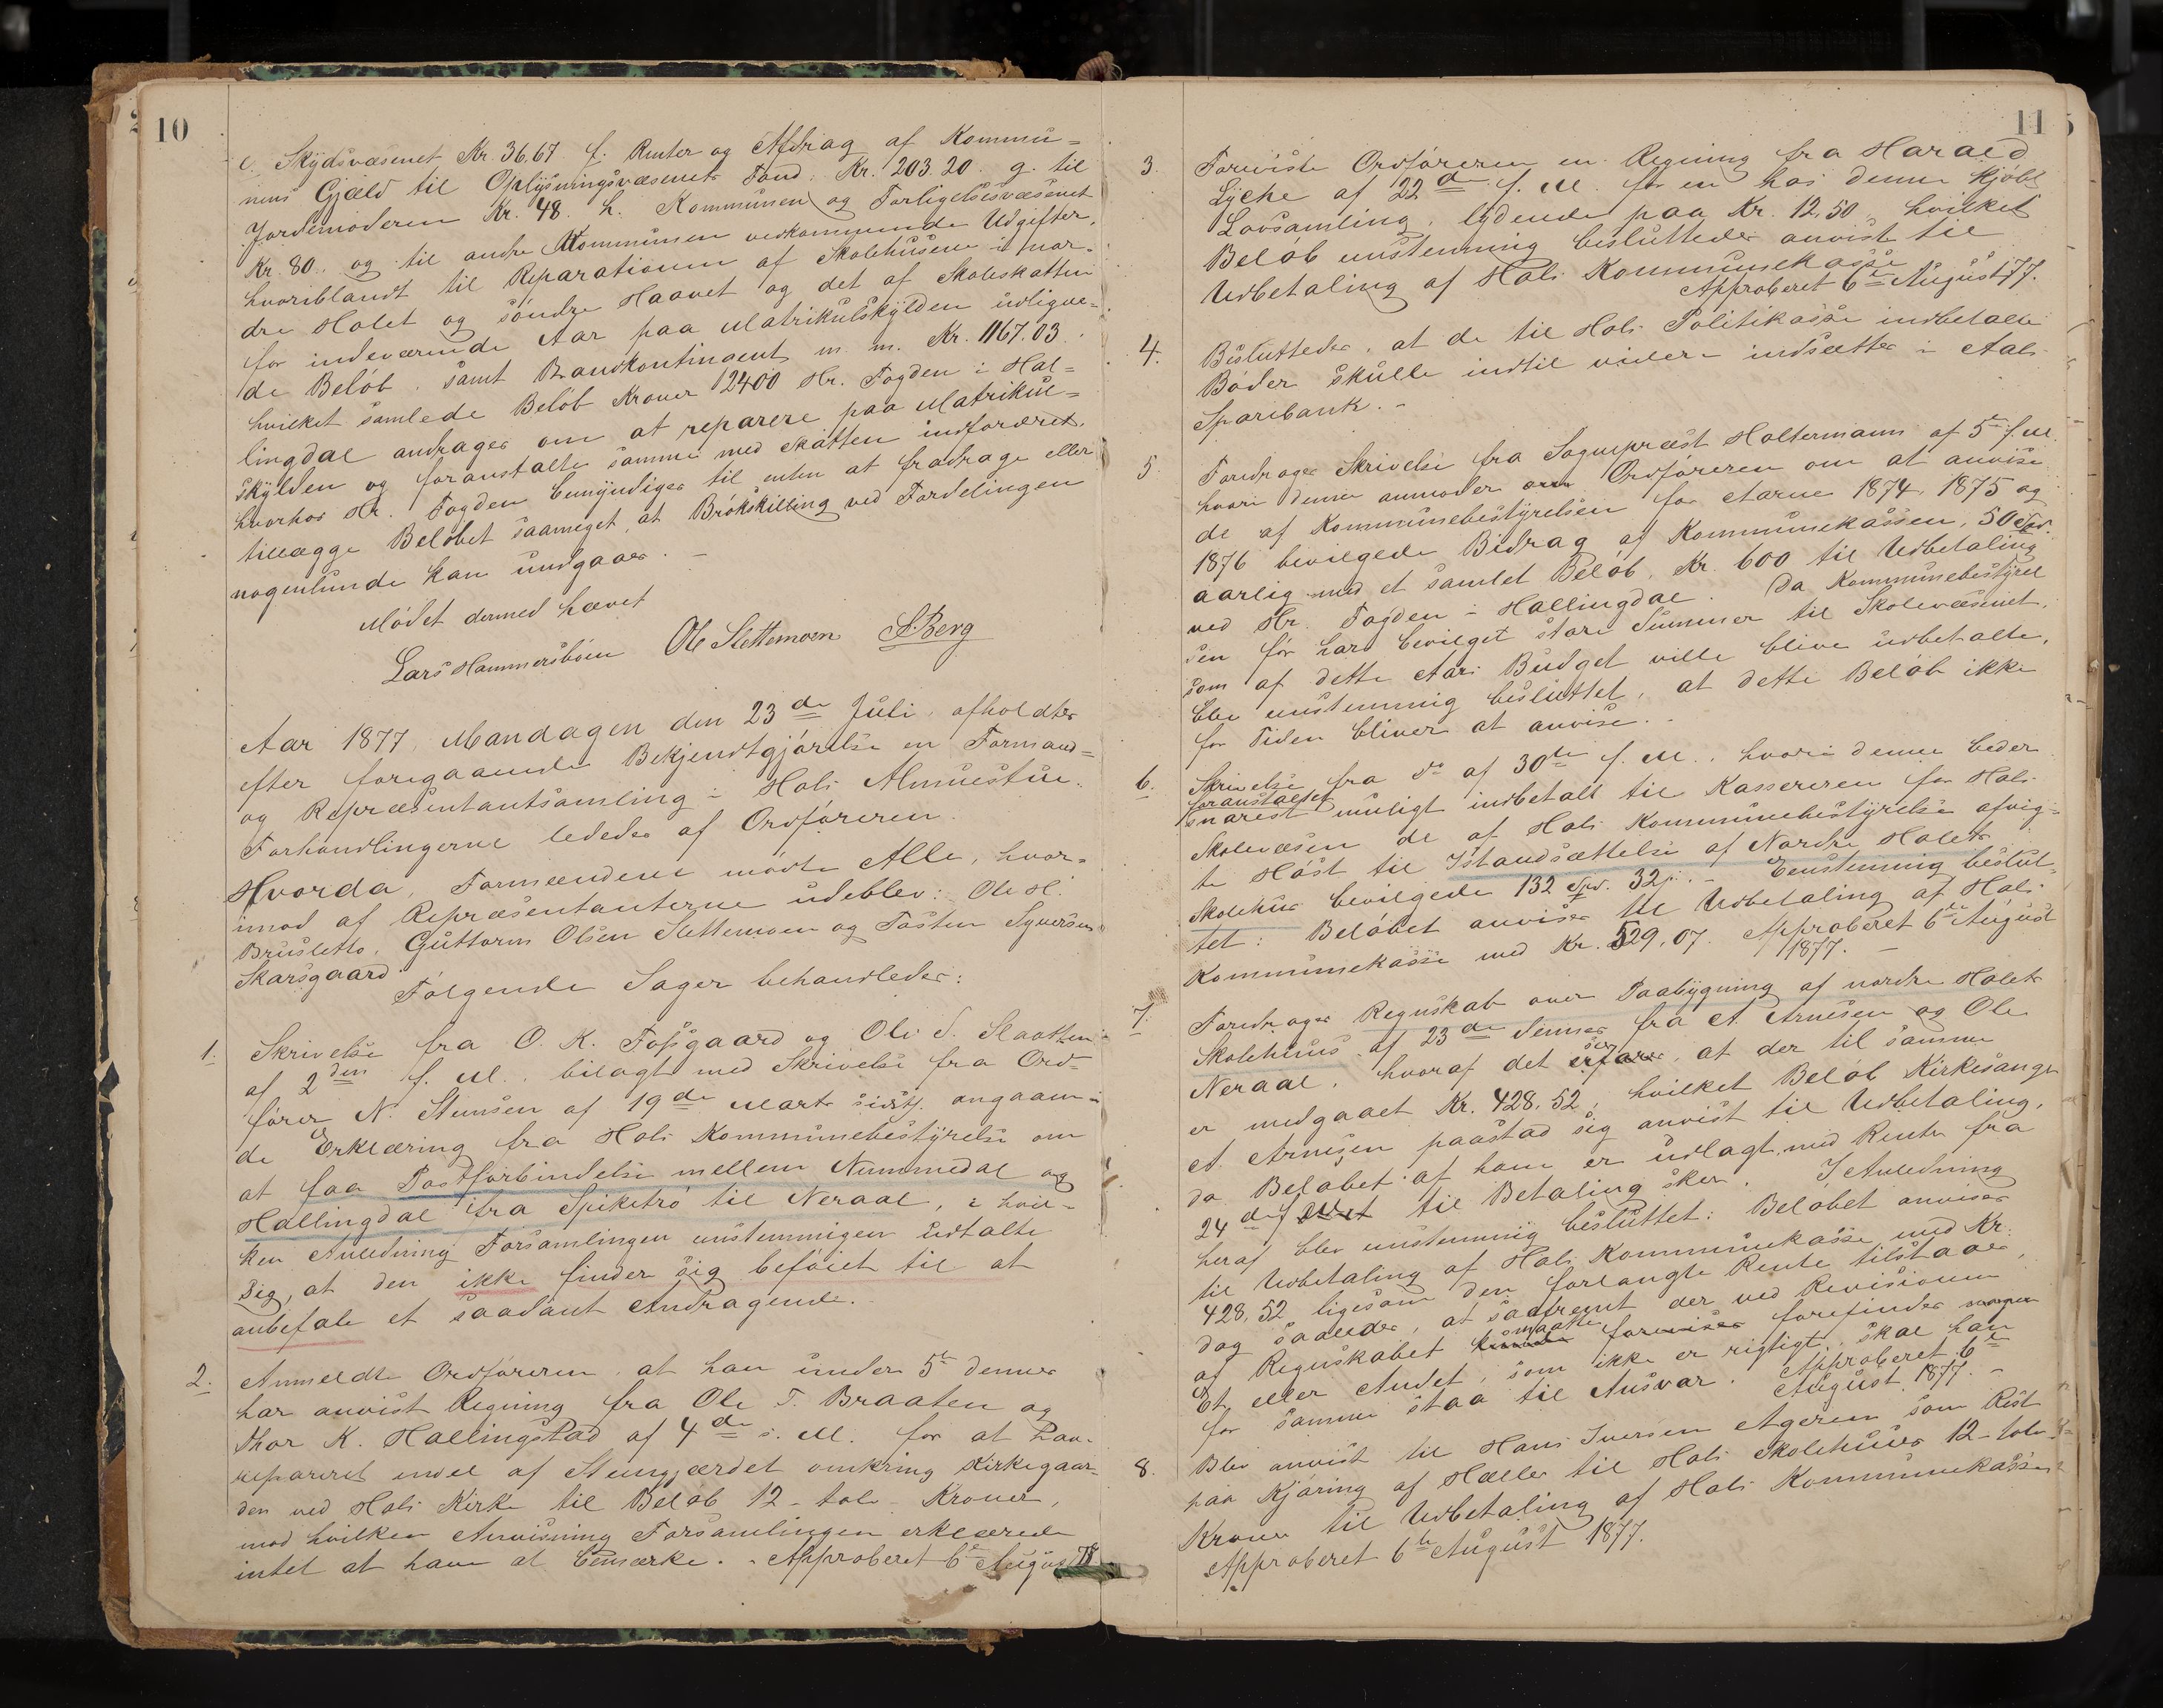 10
e. Skydsvæsenet Kr. 36.67 f. Renter og Afdrag af Kommu=
nens Gjæld til Oplysningsvæsenets Fond. Kr. 203.20. g. til
Jordemoderen Kr. 48. h. Kommunen og Forligelsesvæsenet
Kr. 80. og til andre Kommunen vedkommende Udgifter,
hvoriblandt til Reparationen af Skolehusene i nor-
dre Holet og søndre Haavet og det af Skoleskatten
for indeværende Aar paa Matrikulskylden udligne-
de Beløb, samt Brandkontingent m. m. Kr. 1167.03.
hvilket samlede Beløb Kroner 2400 Hr. Fogden i Hal=
lingdal andrages om at reparere paa Matrikul=
skylden og foranstalte samme med Skatten indfordret,
hvorhos Hr. Fogden bemyndiges til enten at fradrage eller
tillægge Beløbet saameget, at Brøkskilling ved Fordelingen
nogenlunde kan undgaaes. –
Mødet dermed hævet
Lars Hammersbøen Ole Slettemoen S Berg
Aar 1877, Mandagen den 23de Juli, afholdtes
efter foregaaende Bekjendtgjørelse en Formand=
og Repræsentantsamling i Hols Almuestue.
Forhandlingerne lededes af Ordføreren.
Hvorda, Formændene mødte Alle, hvor-
imod af Repræsentanterne udeblev: Ole H.
Brusletto, Guttorm Olsen Slettemoen og Tosten Syversen
Skarsgaard.
Følgende Sager behandledes:
1. Skrivelse fra O. K. Fossgaard og Ole S. Slaatten
af 2den f. M., bilagt med Skrivelse fra Ord-
fører N. Stensen af 19de Marts sidstl. angaaen-
de Erklæring fra Hols Kommunebestyrelse om
at faa Postforbindelse mellem Nummedal og
Hallingdal fra Spiketrø til Neraal, i hvil-
ken Anledning Forsamlingen enstemmigen udtalte
sig, at den ikke finder sig beføiet til at
anbefale et saadant Andragende. –
2. Anmeldte Ordføreren, at han under 5te dennes
har anvist Regning fra Ole T. Braaten og
Thor K. Hallingstad af 4de s. M. for at have
repareret endel af Steengjærdet omkring Kirkegaar-
den ved Hols Kirke til Beløb 12 – tolv – Kroner,
mod hvilken Anvisning Forsamlingen erklærede
intet at have at bemærke. – Approberet 6te August 77
11
3. Foreviste Ordføreren en Regning fra Harald
Lyche af 22de f. M. for en hos denne kjøbt
Lovsamling, lydende paa Kr. 12,50, hvilket
Beløb enstemmig besluttedes anvist til
Udbetaling af Hols Kommunekasse
Approberet 6te August 77.
4. Besluttedes, at de til Hols Politikasse indbetalte
Bøder skulle indtil videre indsættes i Aals
Sparebank. –
5. Foredroges Skrivelse fra Sognepræst Holtermann af 5te f. M.
hvori denne anmoder om Ordføreren om at anvise
de af Kommunebestyrelsen for Aarene 1874, 1875 og
1876 bevilgede Bidrag af Kommunekassen, 50 Spd.
aarlig med et samlet Beløb, Kr. 600 til Udbetaling
ved Hr. Fogden i Hallingdal. Da Kommunebestyrel
sen før har bevilget store Summer til Skolevæsenet,
som af dette Aars Budget ville blive udbetalte,
blev enstemmig besluttet, at dette Beløb ikke
for Tiden bliver at anvise. –
6. Skrivelse fra Do af 30de f. M., hvori denne beder
foranstaltet
snarest muligt indbetalt til Kassereren for Hols
Skolevæsen de af Hols Kommunebestyrelse afvig-
te Høst til Istandsættelse af Nordre Holets
Skolehus bevilgede 132 Spd. 32 s. – Eenstemmig beslut-
tet: Beløbet anvises til Udbetaling af Hols
Kommunekasse med Kr. 529,07. Approberet 6te August
1877. –
7. Foredroges Regnskab over Paabygning af nordre Holets
Skolehuus af 23de dennes fra A. Arnesen og Ole
Neraal, hvoraf det erfares sees, at der til samme
er medgaaet Kr. 428,52, hvilket Beløb Kirkesanger
A. Arnesen paastod sig anvist til Udbetaling,
da Beløbet af ham er udlagt, med Rente fra
24de f. Maet til Betaling sker. I Anledning
heraf blev enstemmig besluttet: Beløbet anvises
til Udbetaling af Hols Kommunekasse med Kr.
428,52 ligesom den forlangte Rente tilstaaes,
dog saaledes, at saafremt der ved Revisionen
af Regnskabet maatte forefindes noget
Et eller Andet, som ikke er rigtigt, skal han
for samme staa til Ansvar. Approberet 6te
August 1877. –
8. Blev anvist til Hans Iversen Ageren som Rest
paa Kjøring af Heller til Hols Skolehuus 12 – tolv –
Kroner til Udbetaling af Hols Kommunekasse
Approberet 6te August 1877.